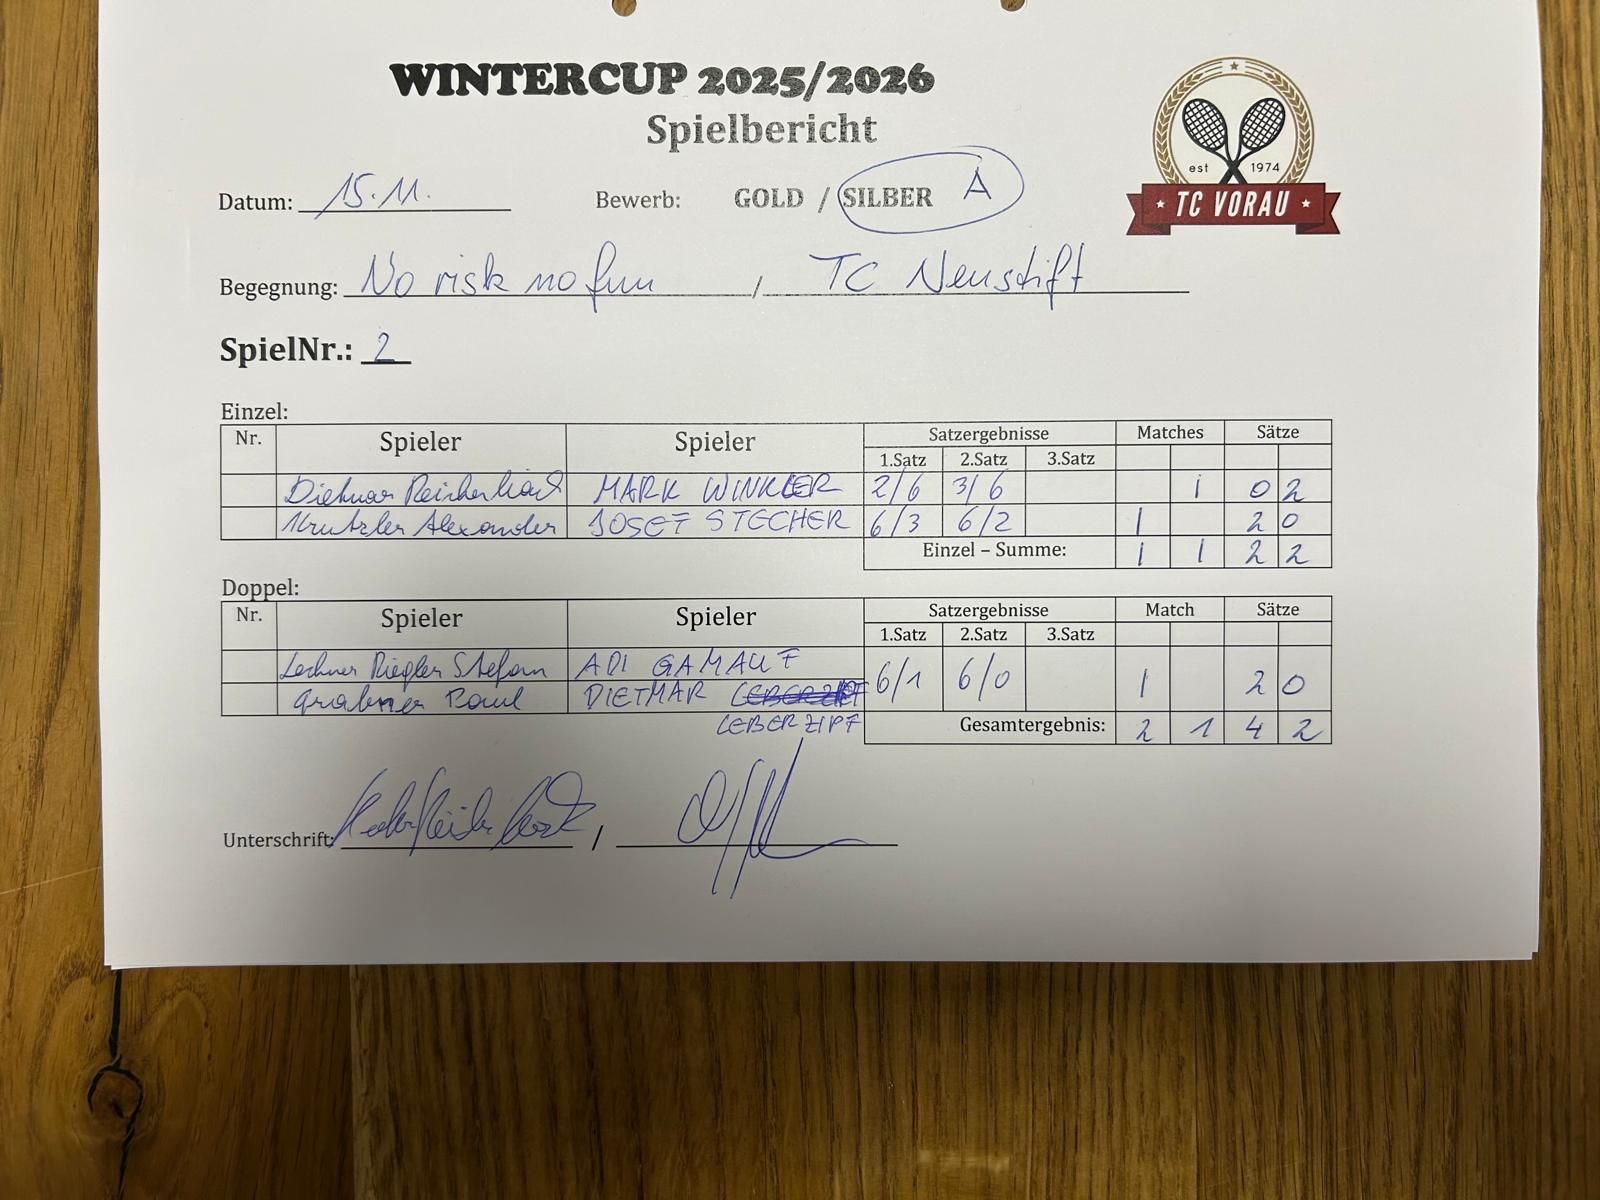 WINTERCUP 2025/2026
Spielbericht
est 1974
TC VORAU
Datum: 15.11. Bewerb: GOLD / SILBER A
Begegnung: No risk no fun / TC Neustift
SpielNr.: 2
Einzel:
Nr. Spieler Spieler Satzergebnisse Matches Sätze
1.Satz 2.Satz 3.Satz
Dietmar MARK WINKLER 2/6 3/6 1 0 2
Krutzler Alexander JOSEF STECHER 6/3 6/2 1 2 0
Einzel – Summe: 1 1 2 2
Doppel:
Nr. Spieler Spieler Satzergebnisse Match Sätze
1.Satz 2.Satz 3.Satz
Lechner Riegler Stefan ADI GAMAUF 6/1 6/0 1 2 0
Grabner Paul DIETMAR
LEBERZIPF
Gesamtergebnis: 2 1 4 2
Unterschrift: /